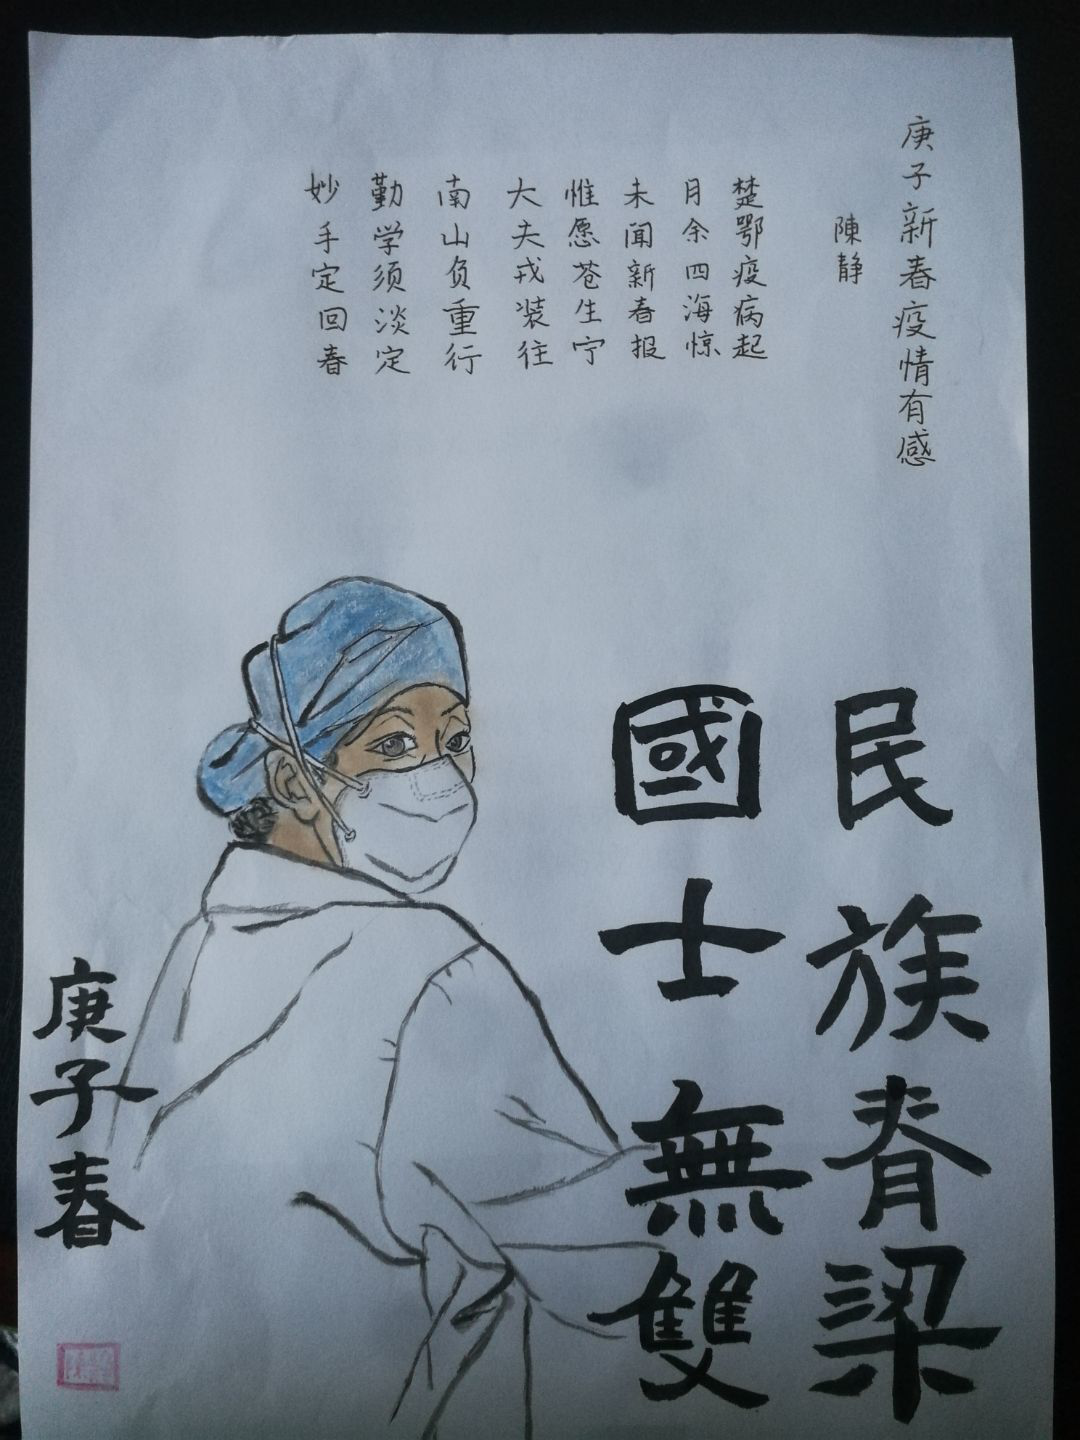 庚子新春疫情有感
陳静
楚鄂疫病起
月余四海惊
未闻新春报
惟愿苍生宁
大夫戎装往
南山负重行
勤学须淡定
妙手定回春
民族脊梁
國士無雙
庚子春